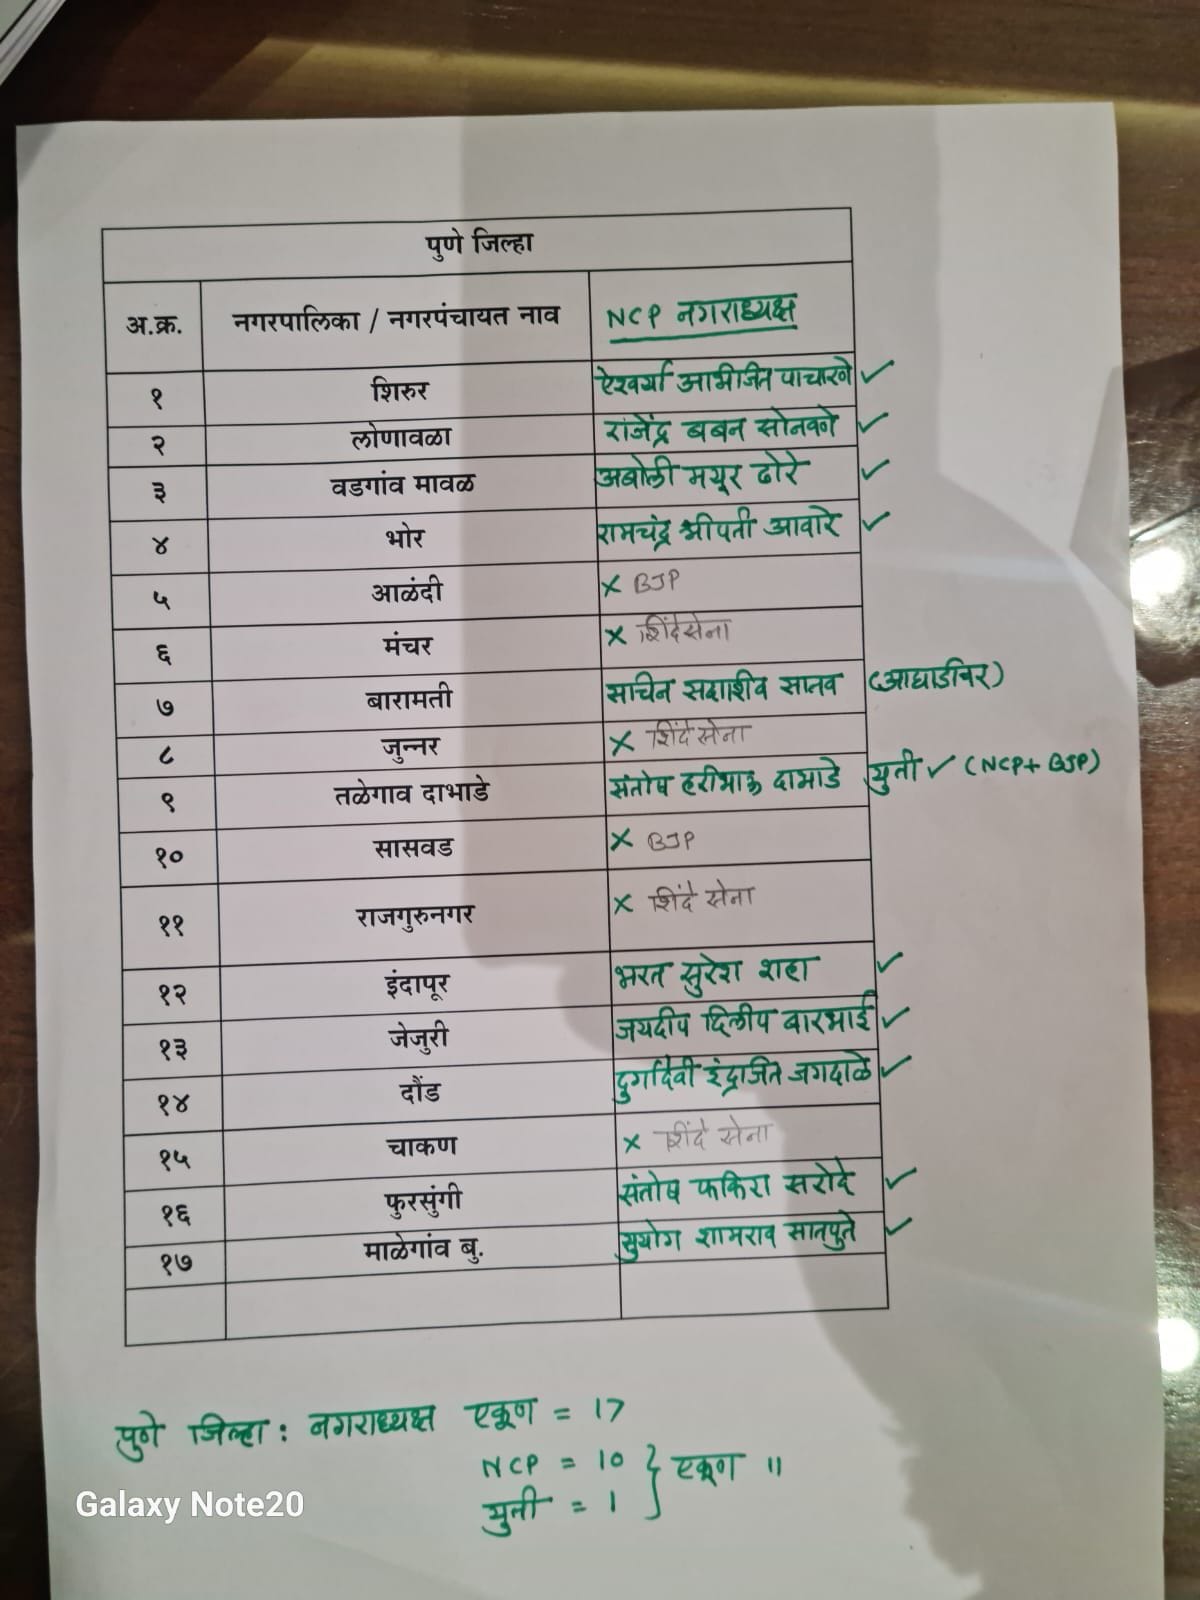 पुणे जिल्हा
अ.क्र. नगरपालिका / नगरपंचायत नाव NCP नगराध्यक्ष
१ शिरुर ऐश्वर्या अभिजित पाचारणे ✓
२ लोणावळा राजेंद्र बबन सोनवणे ✓
३ वडगांव मावळ अबोली मयूर ढोरे ✓
४ भोर रामचंद्र श्रीपती आवारे ✓
५ आळंदी × BJP
६ मंचर × शिंदेसेना
७ बारामती सचिन सदाशीव सातव (आघाडीवर)
८ जुन्नर × शिंदे सेना
९ तळेगाव दाभाडे संतोष हरीभाऊ दाभाडे युती ✓ (NCP+ BJP)
१० सासवड × BJP
११ राजगुरुनगर × शिंदे सेना
१२ इंदापूर भरत सुरेश शहा ✓
१३ जेजुरी जयदीप दिलीप बारभाई ✓
१४ दौंड दुर्गादेवी इंद्रजित जगदाळे ✓
१५ चाकण × शिंदे सेना
१६ फुरसुंगी संतोष फकिरा सरोदे ✓
१७ माळेगांव बु. सुयोग शामराव सातपुते ✓
पुणे जिल्हा : नगराध्यक्ष एकूण = 17
NCP = 10 } एकूण 11
युती = 1
Galaxy Note20